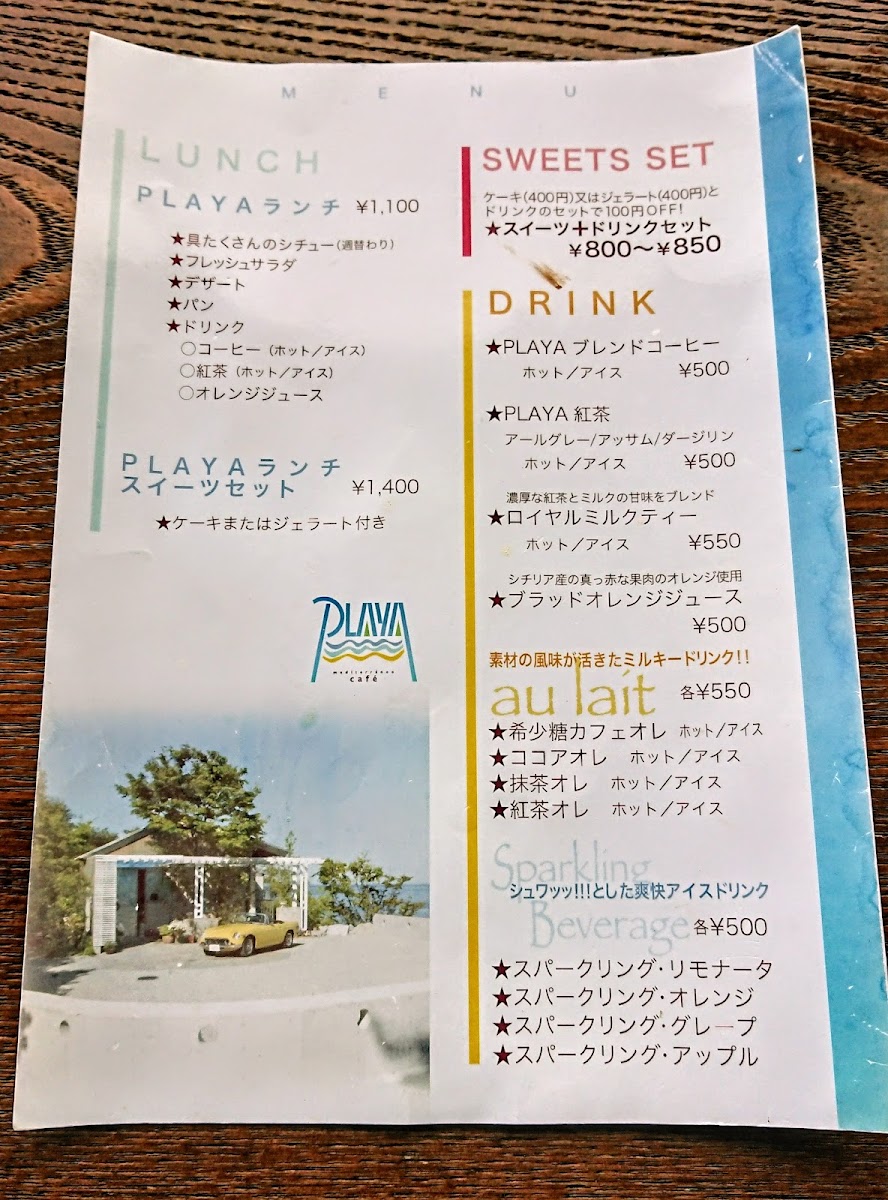 MENU
LUNCH
PLAYAランチ ¥1,100
★具たくさんのシチュー(週替わり)
★フレッシュサラダ
★デザート
★パン
★ドリンク
○コーヒー(ホット/アイス)
○紅茶(ホット/アイス)
○オレンジジュース
PLAYAランチ
スイーツセット ¥1,400
★ケーキまたはジェラート付き
PLAYA
mediterráneo
café
SWEETS SET
ケーキ(400円)又はジェラート(400円)と
ドリンクのセットで100円OFF!
★スイーツ+ドリンクセット
¥800〜¥850
DRINK
★PLAYA ブレンドコーヒー
ホット/アイス ¥500
★PLAYA 紅茶
アールグレー/アッサム/ダージリン
ホット/アイス ¥500
濃厚な紅茶とミルクの甘味をブレンド
★ロイヤルミルクティー
ホット/アイス ¥550
シチリア産の真っ赤な果肉のオレンジ使用
★ブラッドオレンジジュース
¥500
素材の風味が活きたミルキードリンク!!
au lait 各¥550
★希少糖カフェオレ ホット/アイス
★ココアオレ ホット/アイス
★抹茶オレ ホット/アイス
★紅茶オレ ホット/アイス
Sparkling
シュワッッ!!!とした爽快アイスドリンク
Beverage 各¥500
★スパークリング・リモナータ
★スパークリング・オレンジ
★スパークリング・グレープ
★スパークリング・アップル